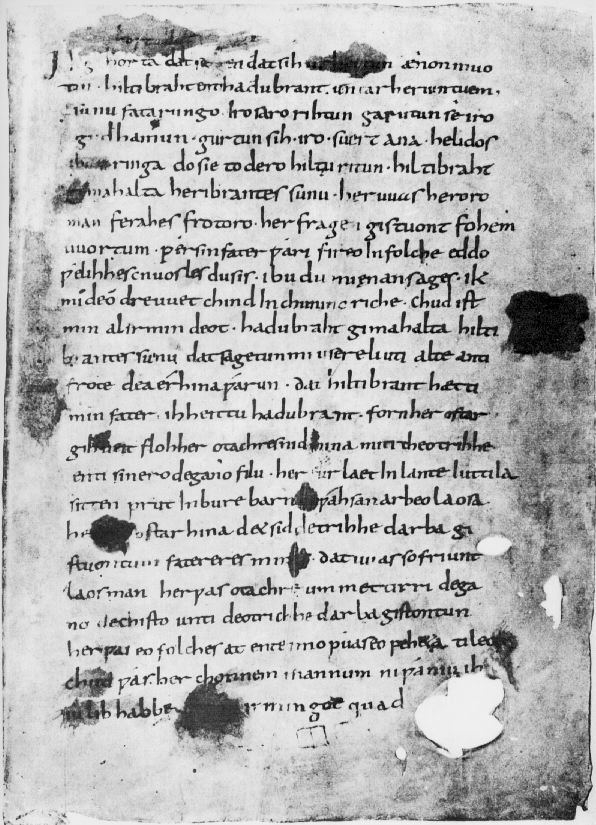 Ik gihorta dat seggen dat sih urhettun ænon muo
tin · hiltibraht enti hadubrant · untar heriuntuem ·
sunu fatarungo · iro saro rihtun garutun se iro
gudhamun · gurtun sih · iro · suert ana · helidos
ringa do sie to dero hiltu ritun · hiltibraht
gimahalta heribrantes sunu · her uuas heroro
man ferahes frotoro · her fragen gistuont fohem
uuortum · ƿer sin fater ƿari fireo In folche eddo
ƿelihhes cnuosles du sis · ibu du mi enan sages · ik
mi de odre uuet chind In chunincriche · chud ist
min al irmin deot · hadubraht gimahalta hilti
brantes sunu dat sagetun mi usere liuti alte anti
frote dea erhina ƿarun · dat hiltibrant hætti
min fater · ih heittu hadubrant · forn her ostar
gihueit floh her otachres nid hina miti theotrihhe
enti sinero degano filu · her furlaet In lante luttila
sitten prut In bure barn unƿahsan arbeo laosa
he ostar hina de sid detrihhe darba gi
stuontum fatereres mines · dat uuas so friunt
laos man her ƿas otachre ummet tirri dega
no dechisto unti deotrichhe darba gistontun
her ƿas eo folches at ente imo ƿuas eo ƿeheta ti leop
chud ƿas her chonnem mannum ni ƿaniu ih
iu lib habbe irmingot quad